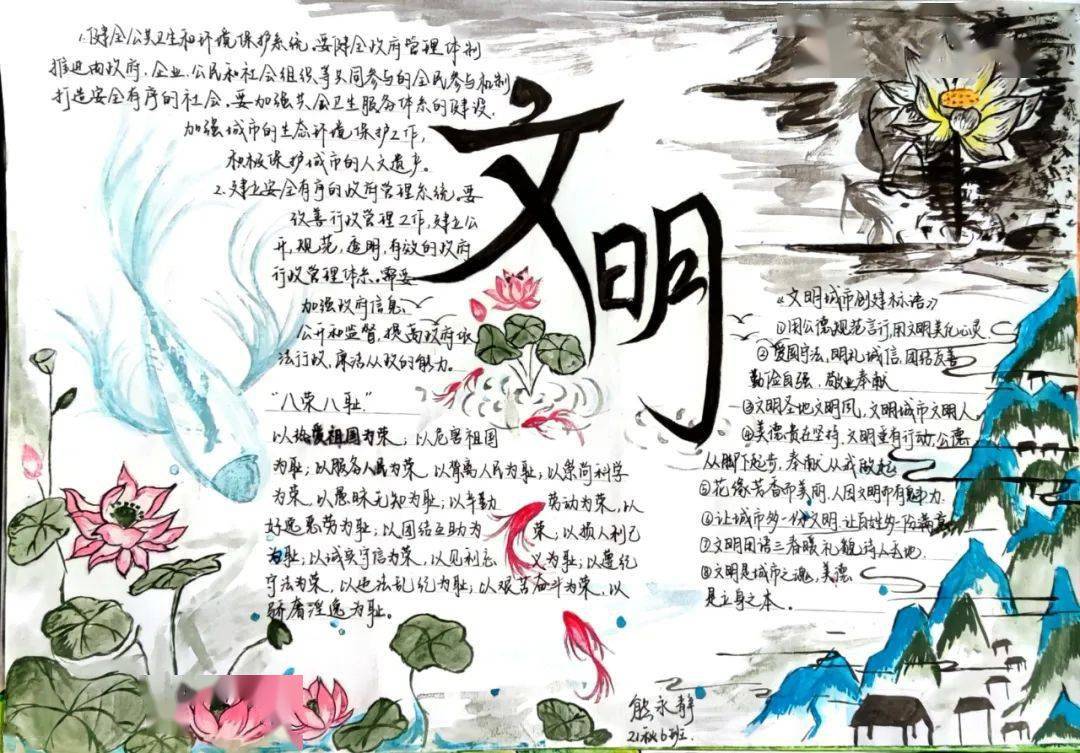 1.健全公共卫生和环境保护系统,要健全政府管理体制
推进由政府、企业、公民和社会组织等共同参与的全民参与机制
打造安全有序的社会。要加强公共卫生服务体系的建设,
加强城市的生态环境保护工作,
积极保护城市的人文遗产。
2.建立安全有序的政府管理系统。要
改善行政管理工作,建立公
开,规范,透明,有效的政府
行政管理体系。需要
加强政府信息
公开和监督,提高政府依
法行政,廉洁从政的能力。
文明
"八荣八耻"
以热爱祖国为荣;以危害祖国
为耻;以服务人民为荣,以背离人民为耻;以崇尚科学
为荣,以愚昧无知为耻;以辛勤劳动为荣,以
好逸恶劳为耻;以团结互助为荣;以损人利己
为耻;以诚实守信为荣,以见利忘义为耻;以遵纪
守法为荣,以违法乱纪为耻;以艰苦奋斗为荣,以
骄奢淫逸为耻。
《文明城市创建标语》
①用公德规范言行用文明美化心灵
②爱国守法,明礼诚信,团结友善
勤俭自强,敬业奉献
③文明圣地文明风,文明城市文明人
④美德贵在坚持,文明重有行动,公德
从脚下起步,奉献从我做起
⑤花绿芳香市美丽,人因文明市有魅力
⑥让城市多一份文明,让百姓多一份满意
⑦文明用语三春暖,礼貌待人
⑧文明是城市之魂,美德
是立身之本。
熊永静
21秋6班